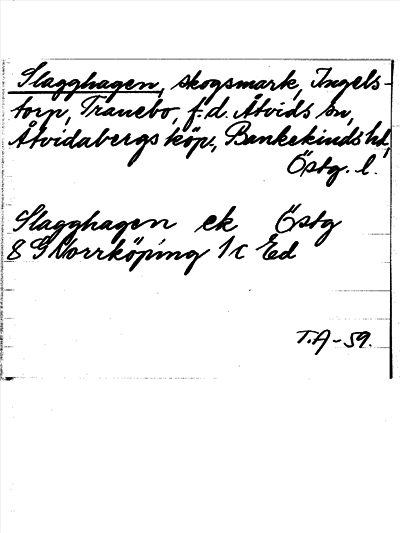 Slagghagen, skogsmark, Ingels-
torp, Tranebo, f.d. Åtvids sn,
Åtvidabergs köp, Bankekinds hd,
Östg. l.
Slagghagen ek Östg
8 G Norrköping 1c Ed
T.A-59.